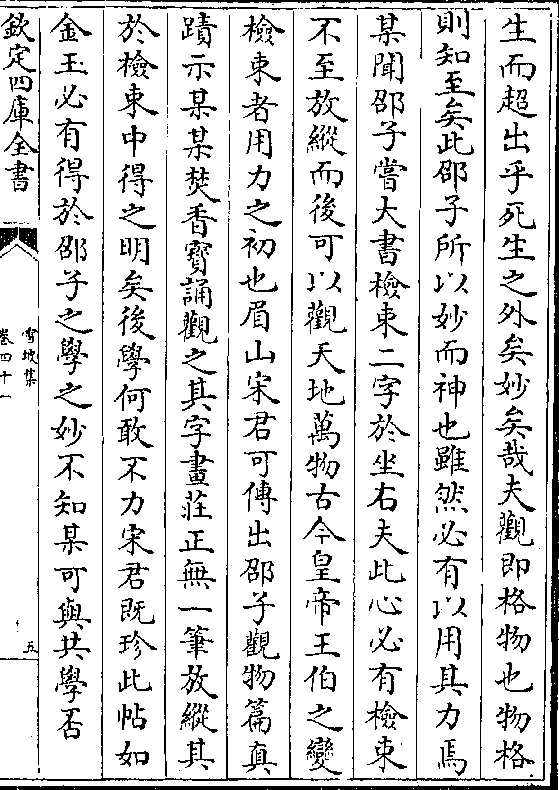 生而超出乎死生之外矣妙矣哉夫觀即格物也物格
則知至矣此邵子所以妙而神也雖然必有以用其力焉
某聞邵子嘗大書檢束二字於坐右夫此心必有檢束
不至放縱而後可以觀天地萬物古今皇帝王伯之變
檢束者用力之初也眉山宋君可傳出邵子觀物篇真
蹟示某某焚香寳誦觀之其字畫莊正無一筆放縱其
於檢束中得之明矣後學何敢不力宋君既珍此帖如
金玉必有得於邵子之學之妙不知某可與共學否
欽定四庫全書
雪坡集
卷四十一
五